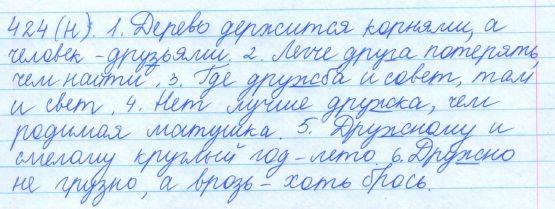 424(н). 1. Дерево держится корнями, а
человек - друзьями. 2. Легче друга потерять,
чем найти. 3. Где дружба и совет, там
и свет. 4. Нет лучше дружка, чем
родимая матушка. 5. Дружному и
смелому круглый год - лето. 6. Дружно
не грузно, а врозь - хоть брось.